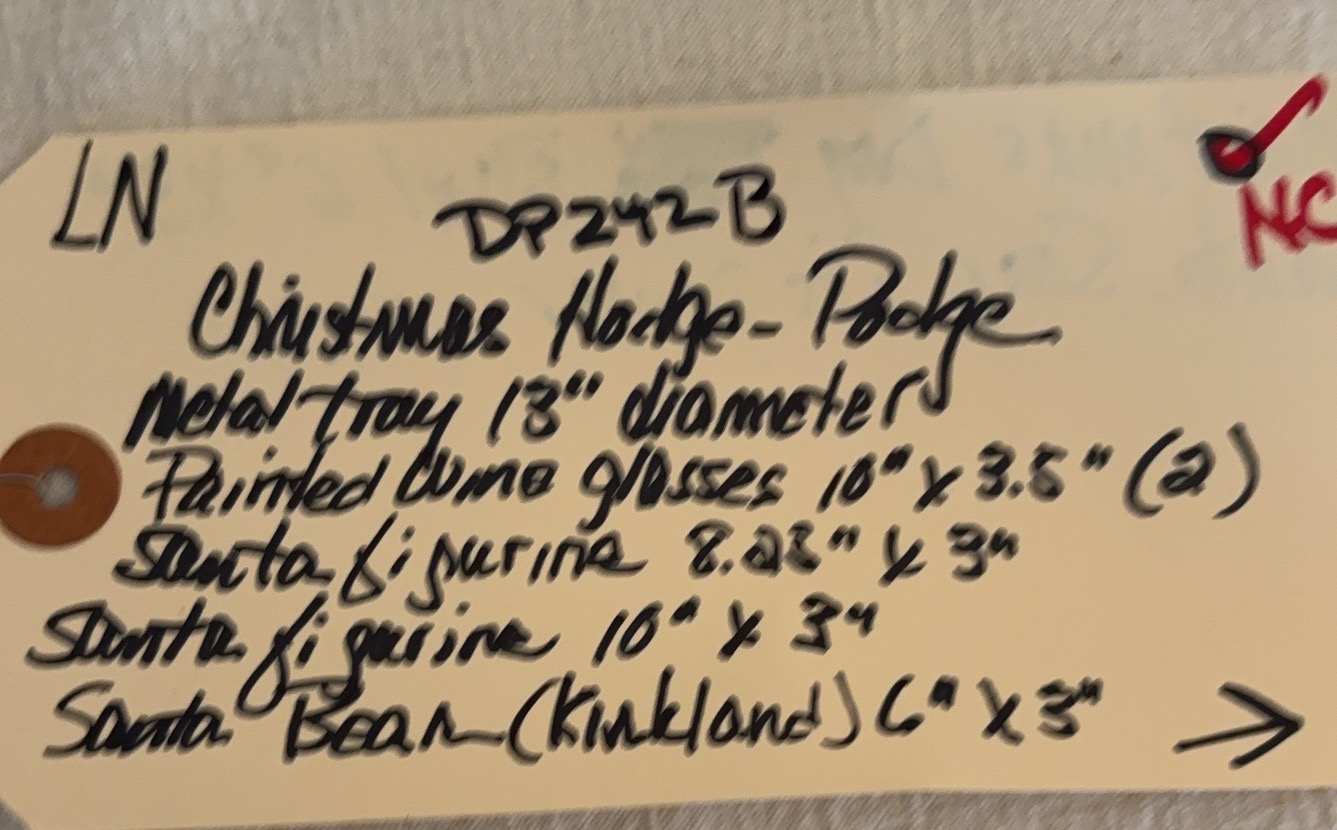 LN
DP242B
NC
Christmas Hodge-Podge
Metal tray 13" diameter
Painted glasses 10" x 3.5" (2)
Santa figurine 8.25" x 3"
Santa figurine 10" x 3"
Santa Bear (Kirkland) 6" x 3" →